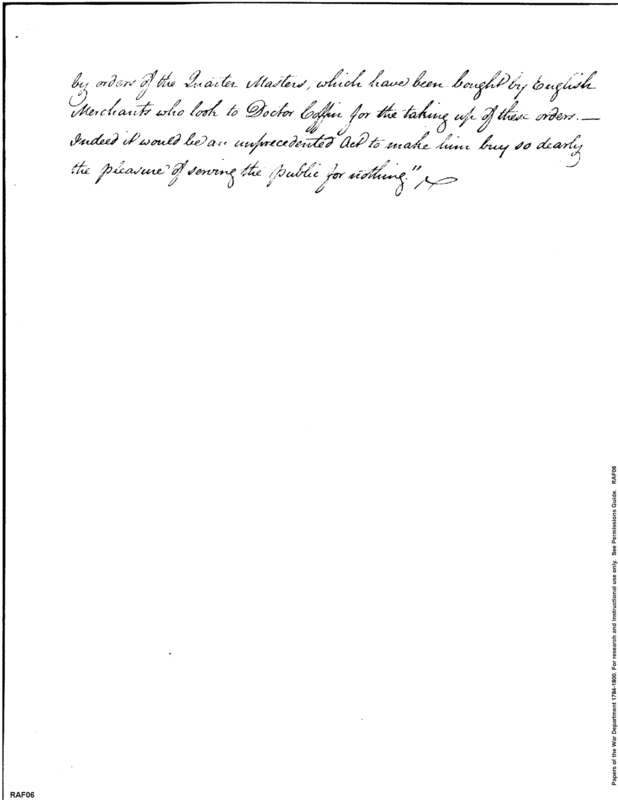 by orders of the Quarter Masters, which have been bought by English
Merchants who look to Doctor Coffin for the taking up of these orders. —
Indeed it would be an unprecedented Act to make him buy so dearly
the pleasure of serving the public for nothing."
Papers of the War Department 1784-1800. For research and instructional use only. See Permissions Guide. RAF06
RAF06